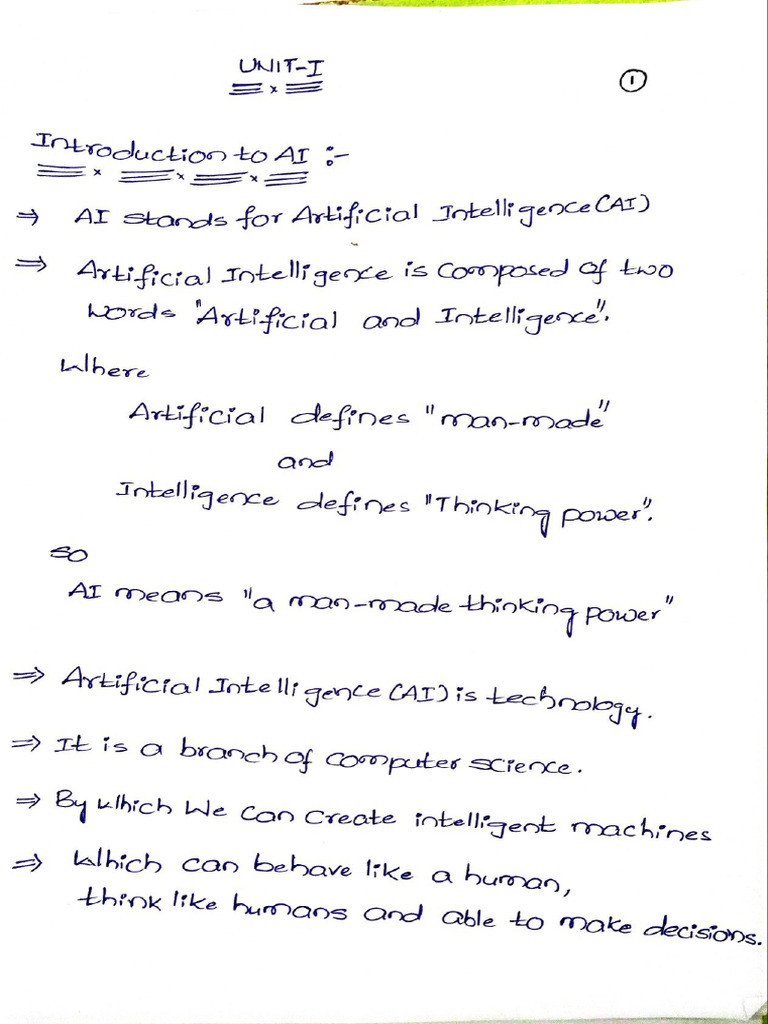 UNIT-I
1
Introduction to AI :-
⇒ AI stands for Artificial Intelligence (AI)
⇒ Artificial Intelligence is composed of two
words "Artificial and Intelligence".
Where
Artificial defines "man-made"
and
Intelligence defines "Thinking power".
so
AI means "a man-made thinking power"
⇒ Artificial Intelligence (AI) is technology.
⇒ It is a branch of computer science.
⇒ By which we can create intelligent machines
⇒ Which can behave like a human,
think like humans and able to make decisions.